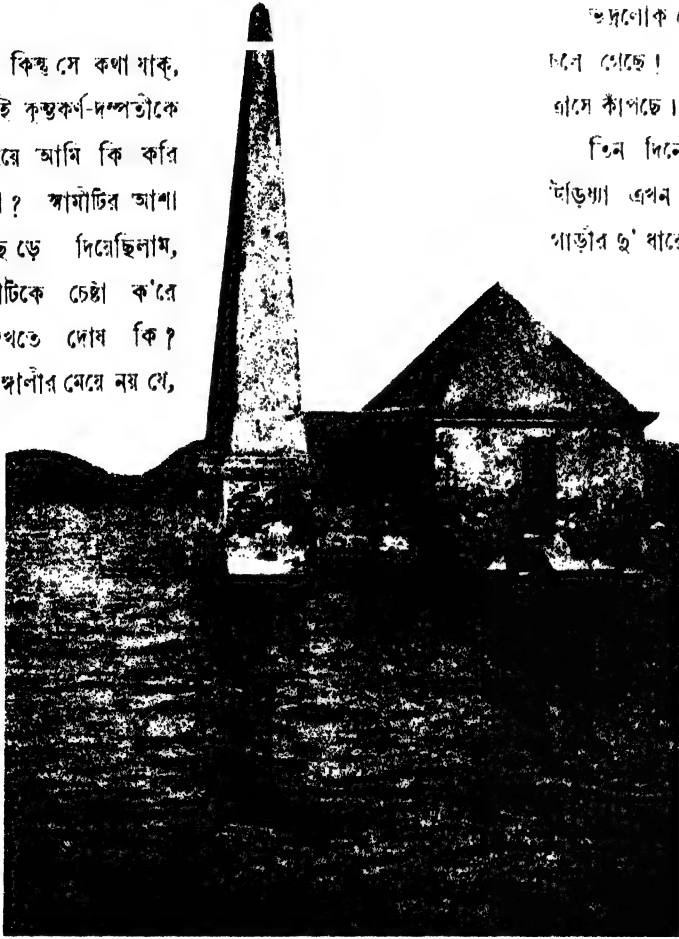 কিন্তু সে কথা যাক্,
ই কুম্ভকর্ণ-দম্পতীকে
য়ে আমি কি করি
? স্বামীটির আশা
ড়ে দিয়েছিলাম,
টিকে চেষ্টা ক'রে
খতে দোষ কি?
ঙ্গালীর মেয়ে নয় যে,
ভদ্রলোক
চলে গেছে!
ত্রাসে কাঁপছে।
তিন দিনে
উড়িষ্যা এখন
গাড়ীর দু' ধারে